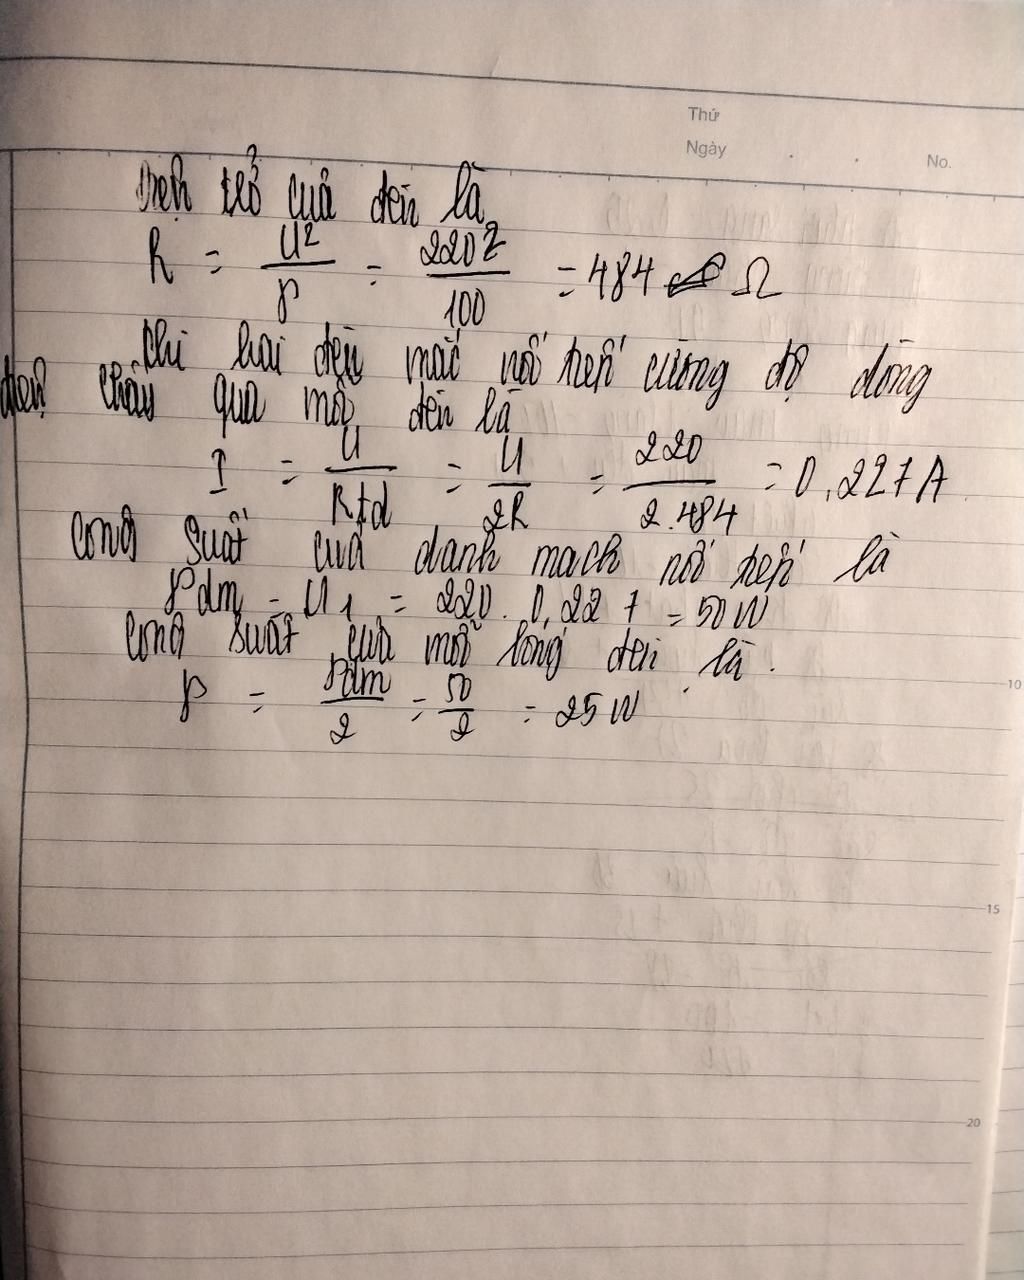 Thứ
Ngày
No.
Điện trở của đèn là
R = U² / P = 220² / 100 = 484 Ω
Khi hai đèn mắc nối tiếp cường độ dòng
điện chạy qua mỗi đèn là
I = U / Rtđ = U / 2R = 220 / 2.484 = 0,227A
Công suất của đoanh mạch nối tiếp là
Pdm = UI = 220. 0,227 = 50W
Công suất của mỗi bóng đèn là.
P = Pdm / 2 = 50 / 2 = 25W
10
15
20